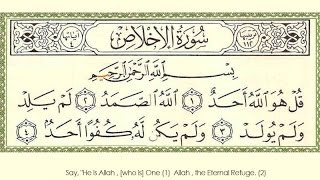 سُورَةُ الْإِخْلَاصِ
بِسْمِ اللَّهِ الرَّحْمَٰنِ الرَّحِيمِ
قُلْ هُوَ اللَّهُ أَحَدٌ ١ اللَّهُ الصَّمَدُ ٢ لَمْ يَلِدْ
وَلَمْ يُولَدْ ٣ وَلَمْ يَكُن لَّهُ كُفُوًا أَحَدٌ ٤
Say, "He is Allah , [who is] One (1) Allah , the Eternal Refuge. (2)